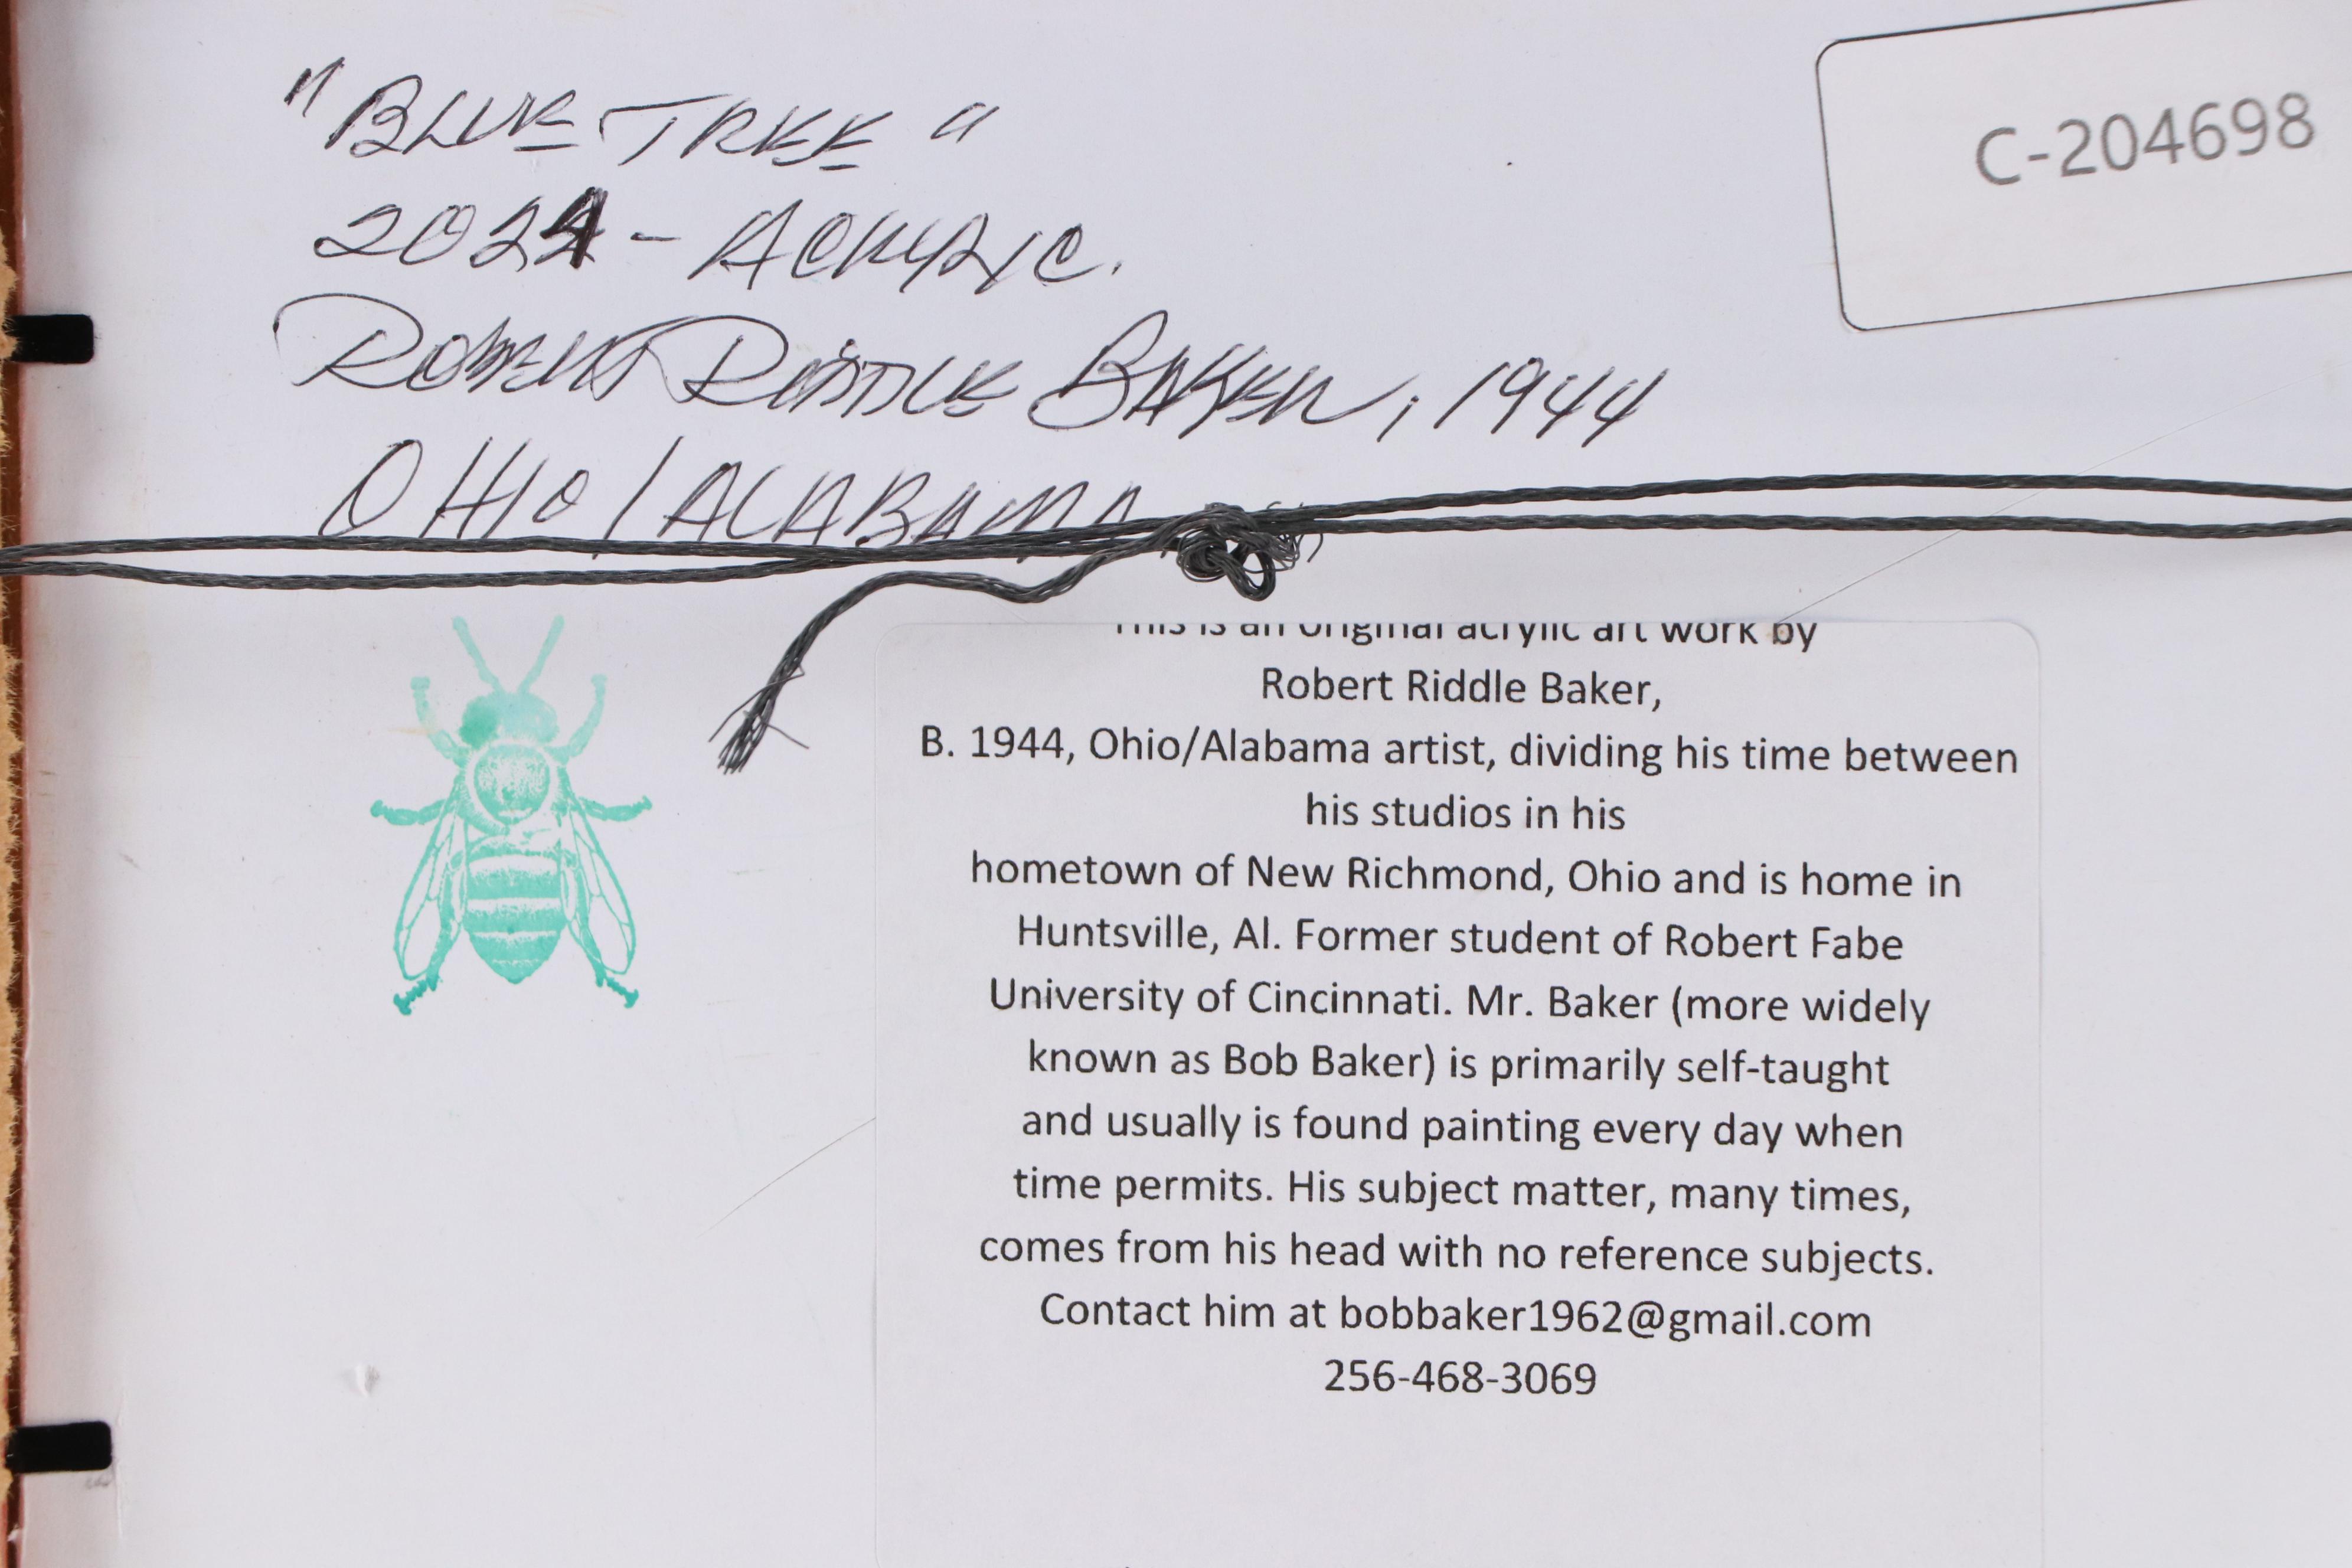 "BLUE TREE"
2024 - ACRYLIC.
ROBERT RIDDLE BAKER, 1944
OHIO/ALABAMA
C-204698
This is an original acrylic art work by
Robert Riddle Baker,
B. 1944, Ohio/Alabama artist, dividing his time between
his studios in his
hometown of New Richmond, Ohio and is home in
Huntsville, Al. Former student of Robert Fabe
University of Cincinnati. Mr. Baker (more widely
known as Bob Baker) is primarily self-taught
and usually is found painting every day when
time permits. His subject matter, many times,
comes from his head with no reference subjects.
Contact him at bobbaker1962@gmail.com
256-468-3069